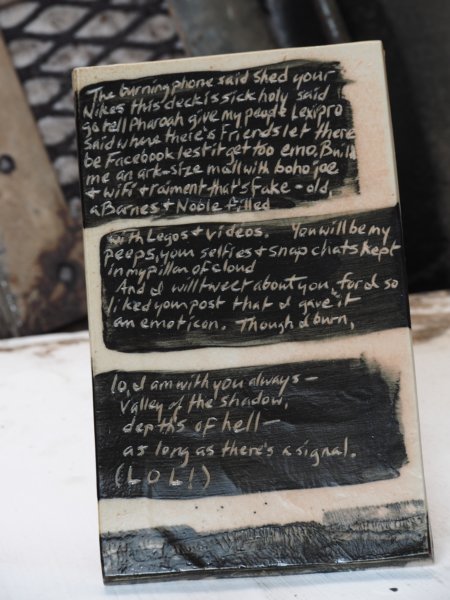 The burning phone said shed your
Nikes this deck is sick holy said
go tell Pharoah give my people Lexipro
said where there's Friends let there
be Facebook lest it get too emo. Build
me an ark-size mall with boho joe
+ wifi + raiment that's fake-old,
a Barnes + Noble filled
with Legos + videos. You will be my
peeps, your selfies + snapchats kept
in my pillar of cloud
And I will tweet about you, for I so
liked your post that I gave it
an emoticon. Though I burn,
lo, I am with you always—
Valley of the shadow,
depths of hell—
as long as there's a signal.
(LOL!)